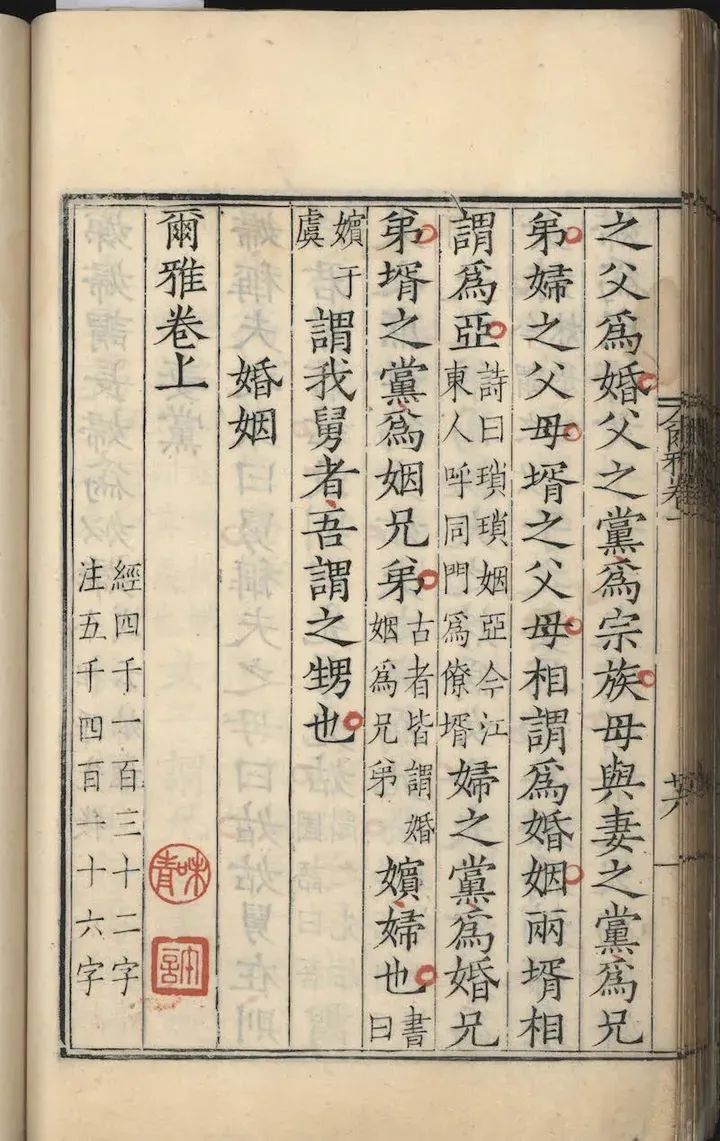 之父爲婚父之黨爲宗族母與妻之黨爲兄
弟婦之父母壻之父母相謂爲婚姻兩壻相
謂爲亞詩曰瑣瑣姻亞今江東人呼同門爲僚壻婦之黨爲婚兄
弟壻之黨爲姻兄弟古者皆謂婚姻爲兄弟嬪婦也書曰
嬪于虞謂我舅者吾謂之甥也
婚姻
爾雅卷上
經四千一百三十二字
注五千四百七十六字
爾雅卷